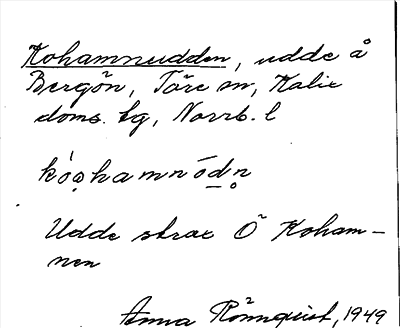 Kohamnudden, udde å
Bergön, Töre sn, Kalix
doms. tg, Norrb. l
kóo̤hamnód̲n̥
Udde strax Ö Koham-
nen
Anna Rönnquist, 1949